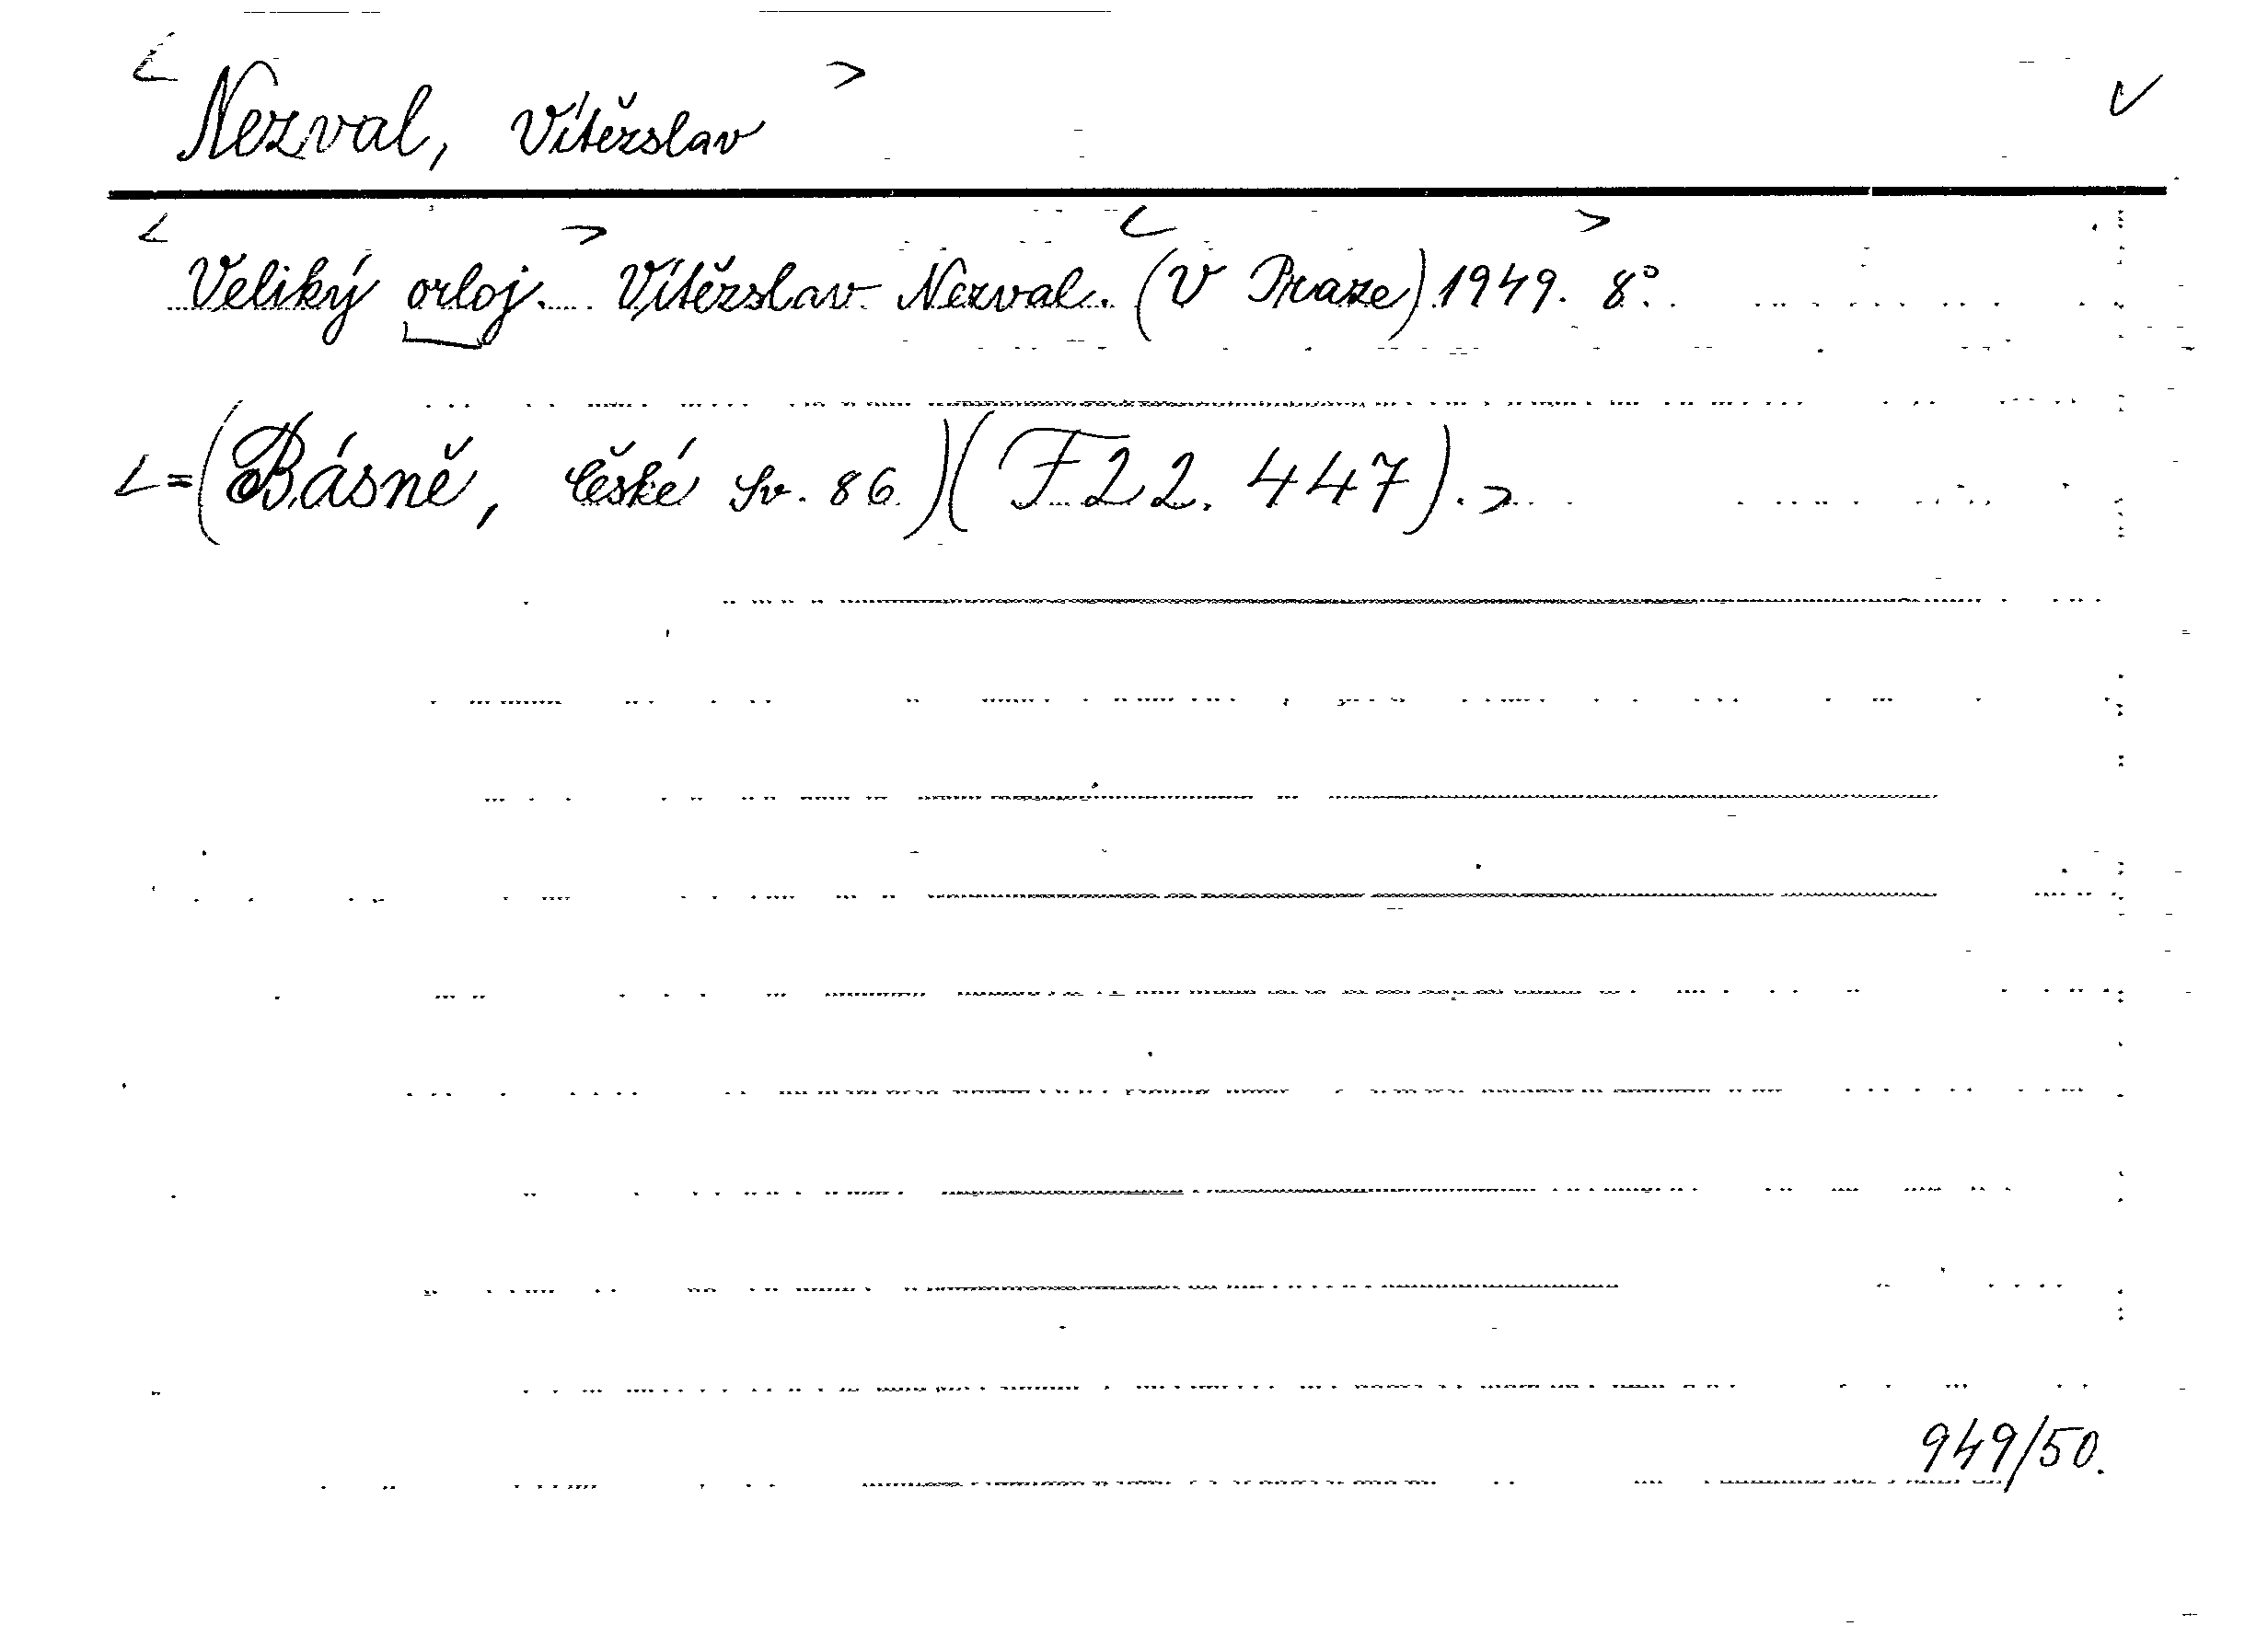 < Nezval, Vítězslav > ✓
< Veliký orloj. > Vítězslav Nezval. < (V Praze) 1949. > 8°.
<=(Básně, české Sv. 86.)(F22.447).>
949/50.